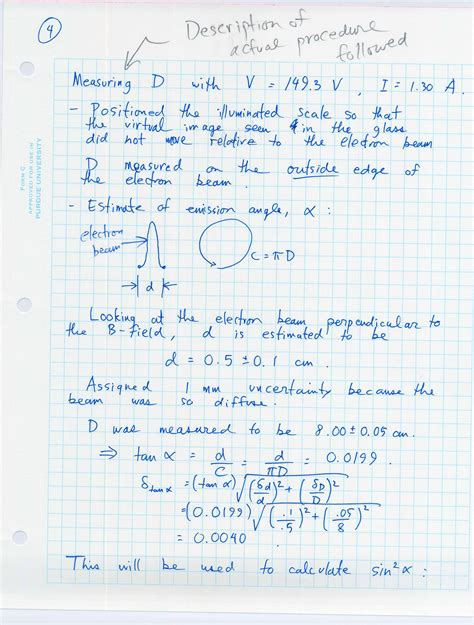 4
Description of
actual procedure
followed
Measuring D with V = 149.3 V, I = 1.30 A.
- Positioned the illuminated scale so that
the virtual image seen in the glass
did not move relative to the electron beam
D measured on the outside edge of
the electron beam.
- Estimate of emission angle, α:
electron
beam
C = πD
d
Looking at the electron beam perpendicular to
the B-field, d is estimated to be
d = 0.5 ± 0.1 cm.
Assigned 1 mm uncertainty because the
beam was so diffuse.
D was measured to be 8.00 ± 0.05 cm.
⇒ tan α = d/C = d/πD = 0.0199.
δ_tan α = (tan α) √((δd/d)² + (δD/D)²)
= (0.0199) √((.1/.5)² + (.05/8)²)
= 0.0040
This will be used to calculate sin²α:
FORM C
APPROVED FOR USE IN
PURDUE UNIVERSITY